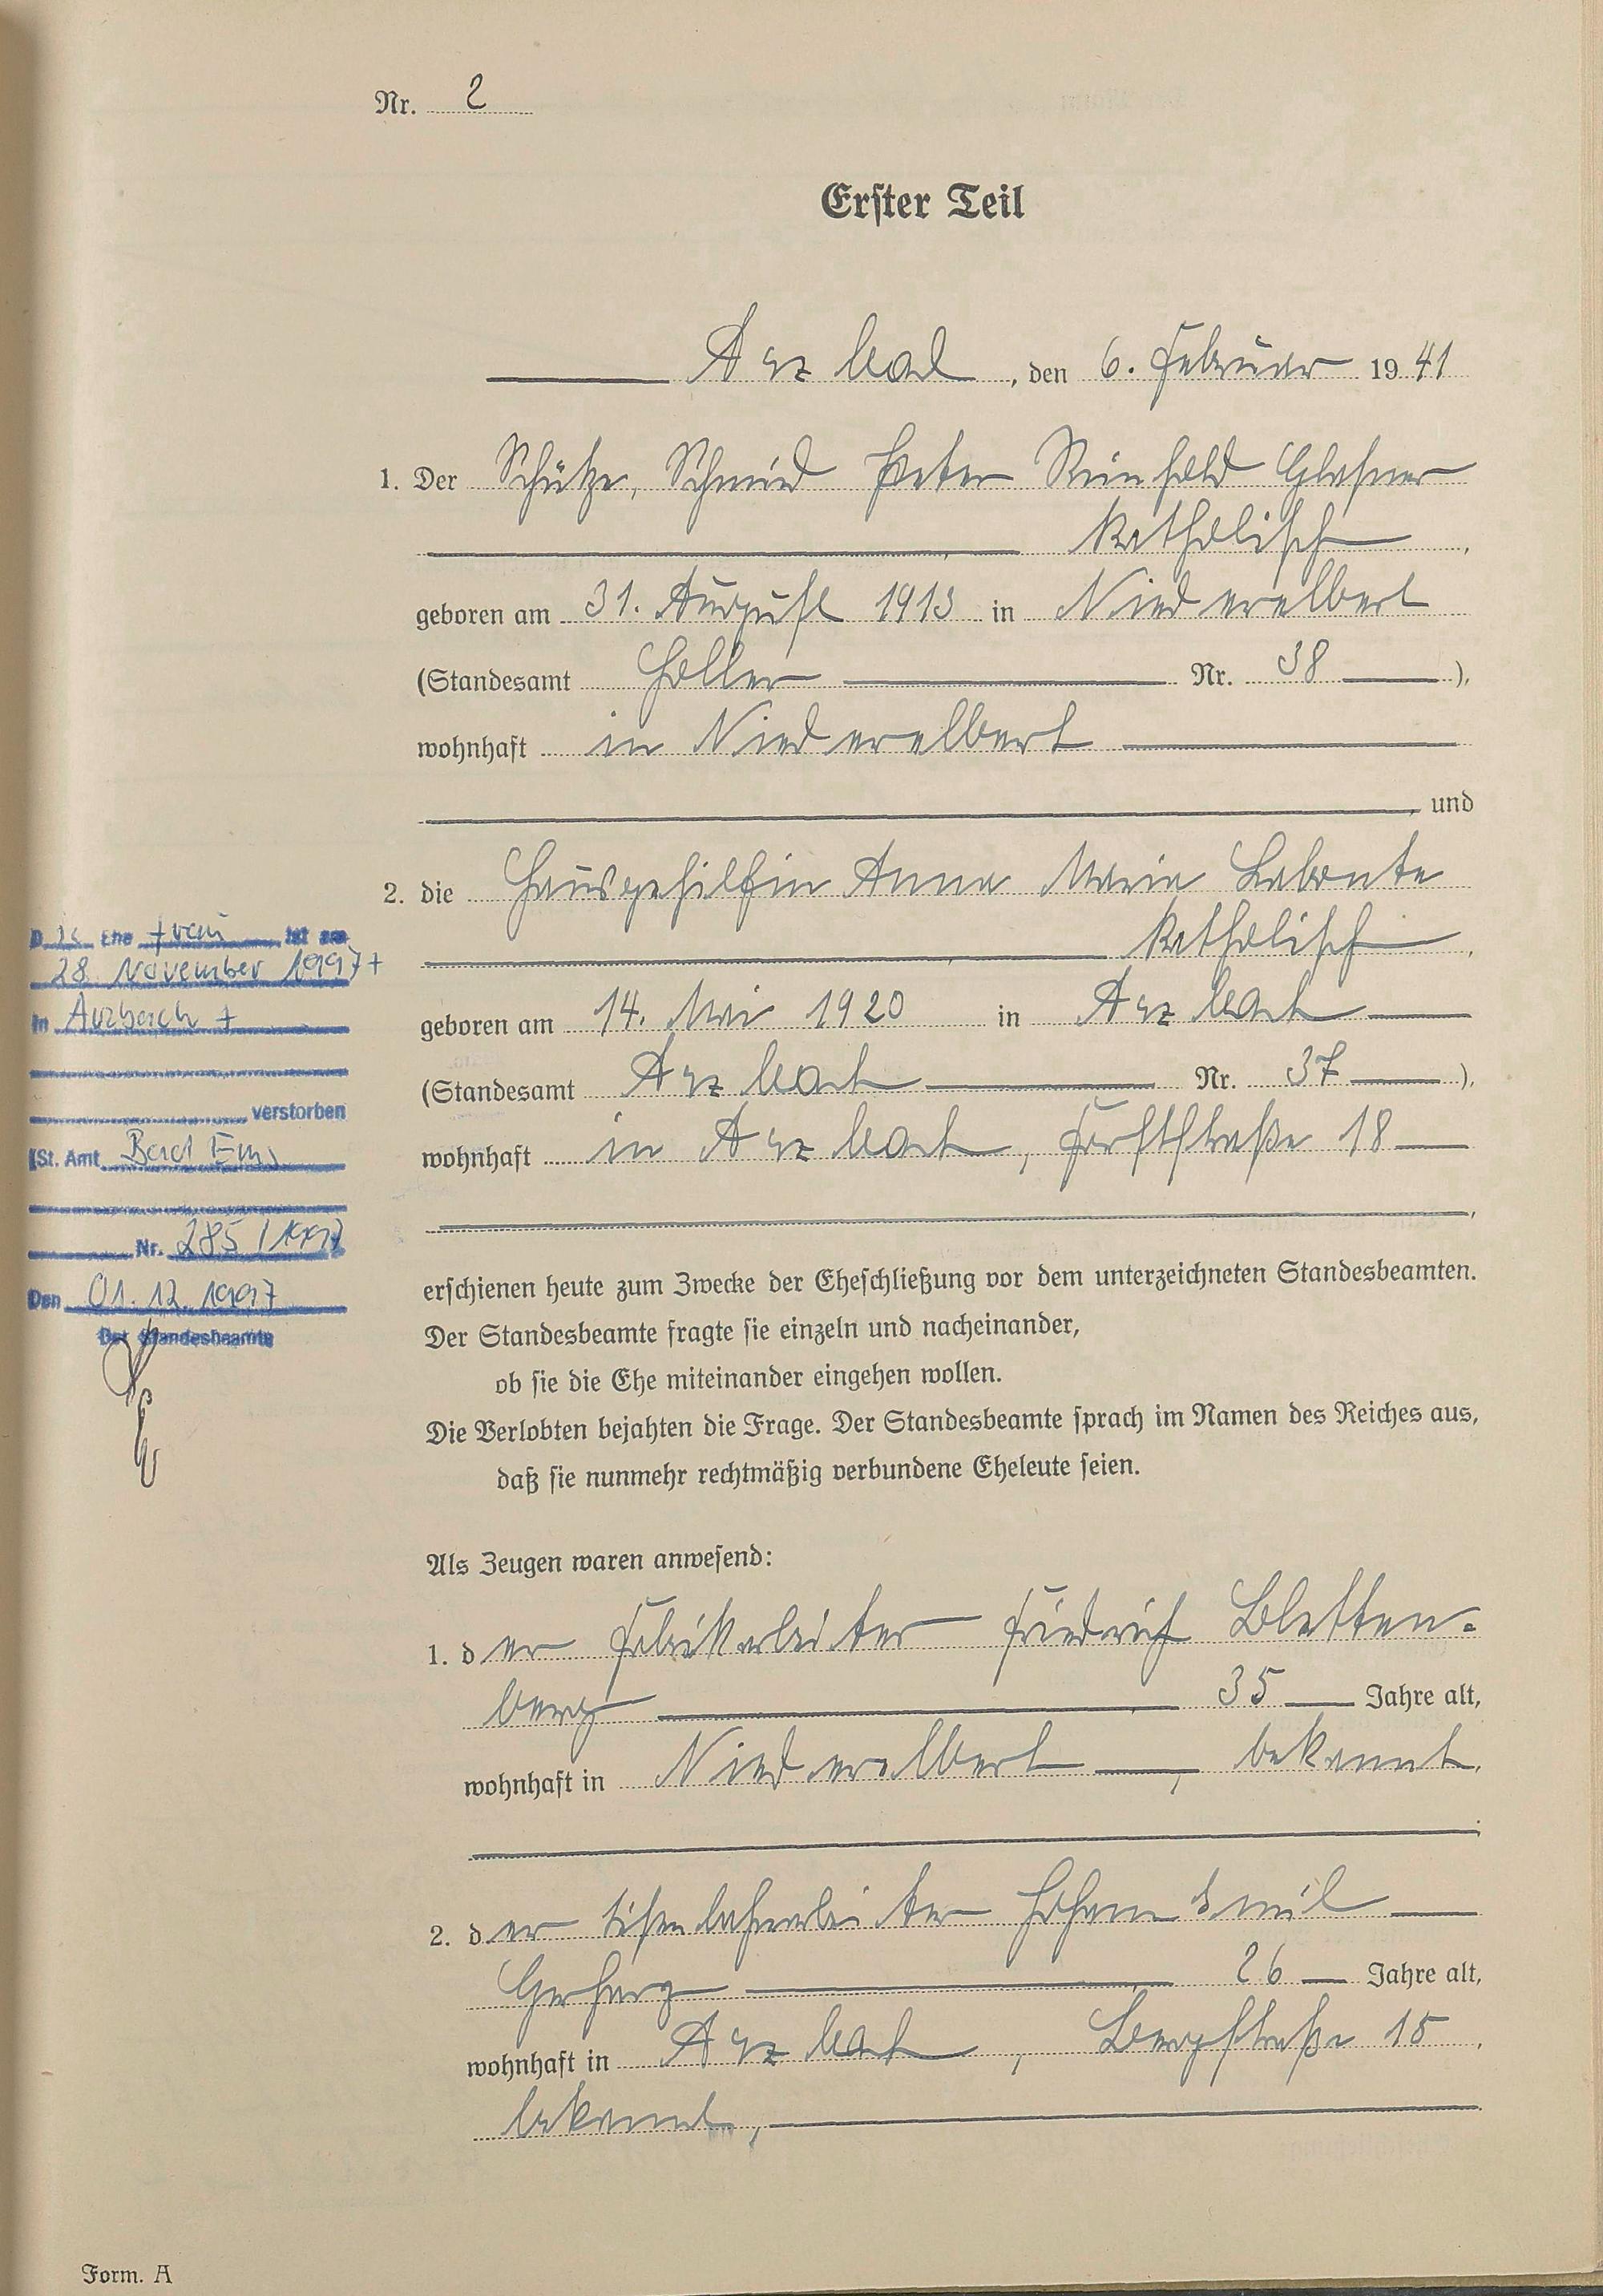 Nr. 2
Erster Teil
Arzbach, den 6. Februar 1941
1. Der Schütze, Schmied Peter Reinhold Glasner
katholisch,
geboren am 31. August 1913 in Niederelbert
(Standesamt Holler Nr. 38),
wohnhaft in Niederelbert
und
2. die Hausgehilfin Anna Maria Labonte
katholisch,
geboren am 14. Mai 1920 in Arzbach
(Standesamt Arzbach Nr. 37),
wohnhaft in Arzbach, Forststraße 18
,
erschienen heute zum Zwecke der Eheschließung vor dem unterzeichneten Standesbeamten.
Der Standesbeamte fragte sie einzeln und nacheinander,
ob sie die Ehe miteinander eingehen wollen.
Die Verlobten bejahten die Frage. Der Standesbeamte sprach im Namen des Reiches aus,
daß sie nunmehr rechtmäßig verbundene Eheleute seien.
Als Zeugen waren anwesend:
1. der Fabrikarbeiter Friedrich Bletten-
berg 35 Jahre alt,
wohnhaft in Niederelbert, bekannt,
2. der Eisenbahnarbeiter Johann Emil
Gerharz 26 Jahre alt,
wohnhaft in Arzbach, Bergstraße 15,
bekannt,
Die Ehefrau ist am
28. November 1997 +
in Arzbach +
verstorben
(St. Amt Bad Ems
Nr. 285/1997
Den 01.12.1997
Der Standesbeamte
Form. A